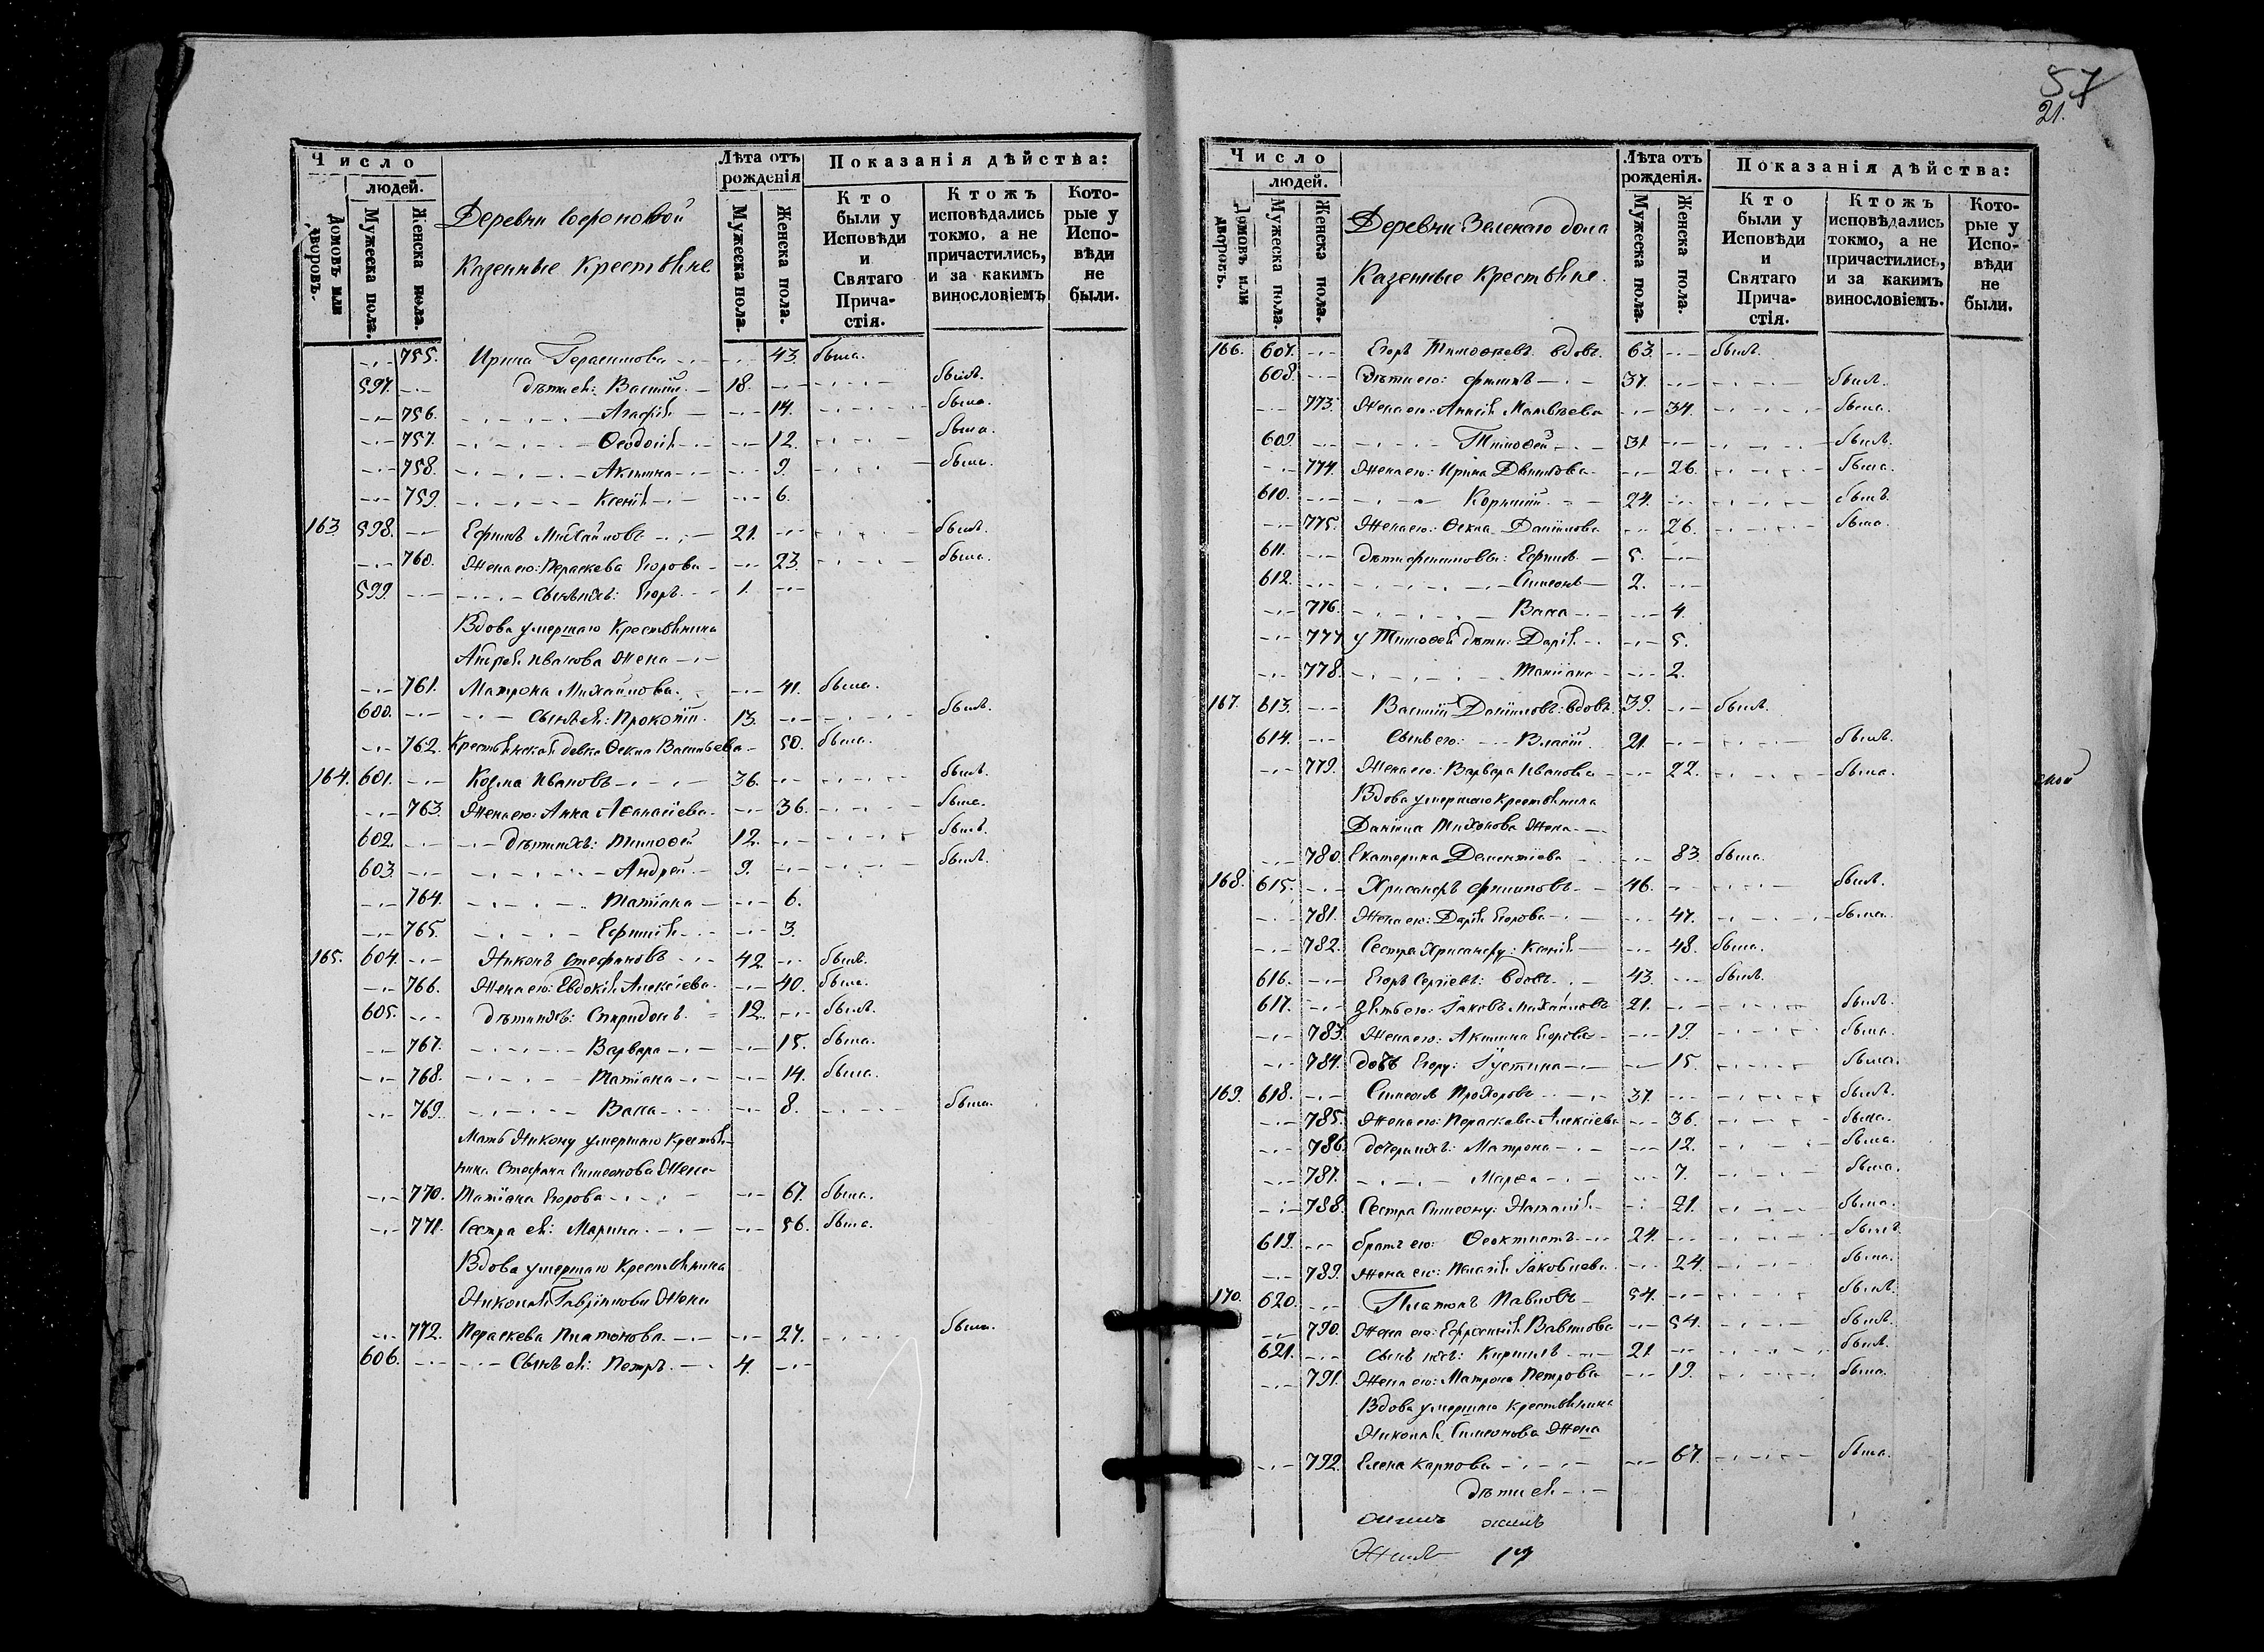 Число
людей.
Домовъ или дворовъ.
Мужеска пола.
Женска пола.
Деревни Софроновой
Казенные Крестьяне
Лѣта отъ рожденія
Мужеска пола.
Женска пола.
Показанія дѣйства:
Кто были у Исповѣди и Святаго Прича-стія.
Ктожъ исповѣдались токмо, а не причастились, и за какимъ винословіемъ
Кото-рые у Испо-вѣди не были.
755. Ирина Герасимова 43. была.
597. Дѣти ея: Василій 18. былъ.
756. Агафія 14. была.
757. Ѳеодосія 12. была.
758. Акилина 9. была.
759. Ксенія 6.
163 598. Ефимъ Михайловъ 21. былъ.
760. Жена его: Параскева Егорова 23. была.
599. Сынъ ихъ: Егоръ 1.
Вдова умершаго Крестьянина
Андрея Иванова Жена
761. Матрона Михайлова. 41. была.
600. Сынъ ея: Прокопій. 13. былъ.
762. Крестьянская девка Ѳекла Васильева 50. была.
164. 601. Козма Ивановъ 36. былъ.
763. Жена его: Анна Аѳанасіева 36. была.
602. Дѣти ихъ: Тимоѳей 12. былъ.
603 Андрей 9. былъ.
764. Татіана 6.
765. Ефимія 3.
165. 604. Никонъ Стефановъ 42 былъ.
766. Жена его: Евдокія Алексіева 40. была.
605. Дѣти ихъ: Спиридонъ 12. былъ.
767. Варвара 15. была.
768. Татіана 14. была.
769. Васса 8. была.
Мать Никону умершаго Крестья-
нина Стефана Симеонова Жена
770. Татіана Егорова 67. была.
771. Сестра ея: Марина 56. была.
Вдова умершаго Крестьянина
Николая Гавріилова Жена
772. Параскева Платонова 27. была.
606. Сынъ ея: Петръ 4.
57
21.
Число
людей.
Домовъ или дворовъ.
Мужеска пола.
Женска пола.
Деревни Зеленаго дола
Казенные Крестьяне.
Лѣта отъ рожденія.
Мужеска пола.
Женска пола.
Показанія дѣйства:
Кто были у Исповѣди и Святаго Прича-стія.
Ктожъ исповѣдались токмо, а не причастились, и за какимъ винословіемъ.
Кото-рые у Испо-вѣди не были.
166. 607. Егоръ Тимоѳеевъ вдовъ. 63. былъ.
608. Дѣти его: Филипъ 37. былъ.
773. Жена его: Анисія Матвѣева 34. была.
609. Тимоѳей 31 былъ.
774. Жена его: Ирина Данилова 26. была.
610. Корнилій 24. былъ.
775. Жена его: Ѳекла Даніилова 26. была.
611. Дѣти Филиповы: Ефимъ 5.
612. Симеонъ 2.
776. Васса 4.
777 у Тимоѳея дѣти: Дарія 5.
778. Татіана 2.
167. 613. Василій Даніиловъ: вдовъ. 39. былъ.
614. Сынъ его: Власій 21. былъ.
779. Жена его: Варвара Иванова 22. была.
Вдова умершаго Крестьянина
Даніила Тихонова Жена
780. Екатерина Дементіева 83. была.
168. 615. Хрисанфъ Филиповъ 46. былъ.
781. Жена его: Дарія Егорова 47. была.
782. Сестра Хрисанфу: Ксенія 48. была.
616. Егоръ Сергіевъ: вдовъ 43. былъ.
617. Зять его: Іаковъ Михайловъ 21. былъ.
783. Жена его: Акилина Егорова 19. была.
784. дочь Егору: Іустина 15. была.
169. 618. Симеонъ Прохоровъ 37. былъ.
785. Жена его: Параскева Алексіева 36. была.
786. дочери ихъ: Матрона 12. была.
787. Марѳа 7. была.
788. Сестра Симеону: Наталія 21. была.
619. братъ его: Ѳеоктистъ 24. былъ.
789. Жена его: Пелагія Іаковлева 24. была.
170. 620. Платонъ Павловъ 54. былъ.
790. Жена его: Ефросинія Вавилова 54. былъ.
621. Сынъ ихъ: Кирилъ 21. былъ.
791. Жена его: Матрона Петрова 19. была.
Вдова умершаго Крестьянина
Николая Симеонова Жена
792. Елена Карпова 67. была.
Дѣти ея